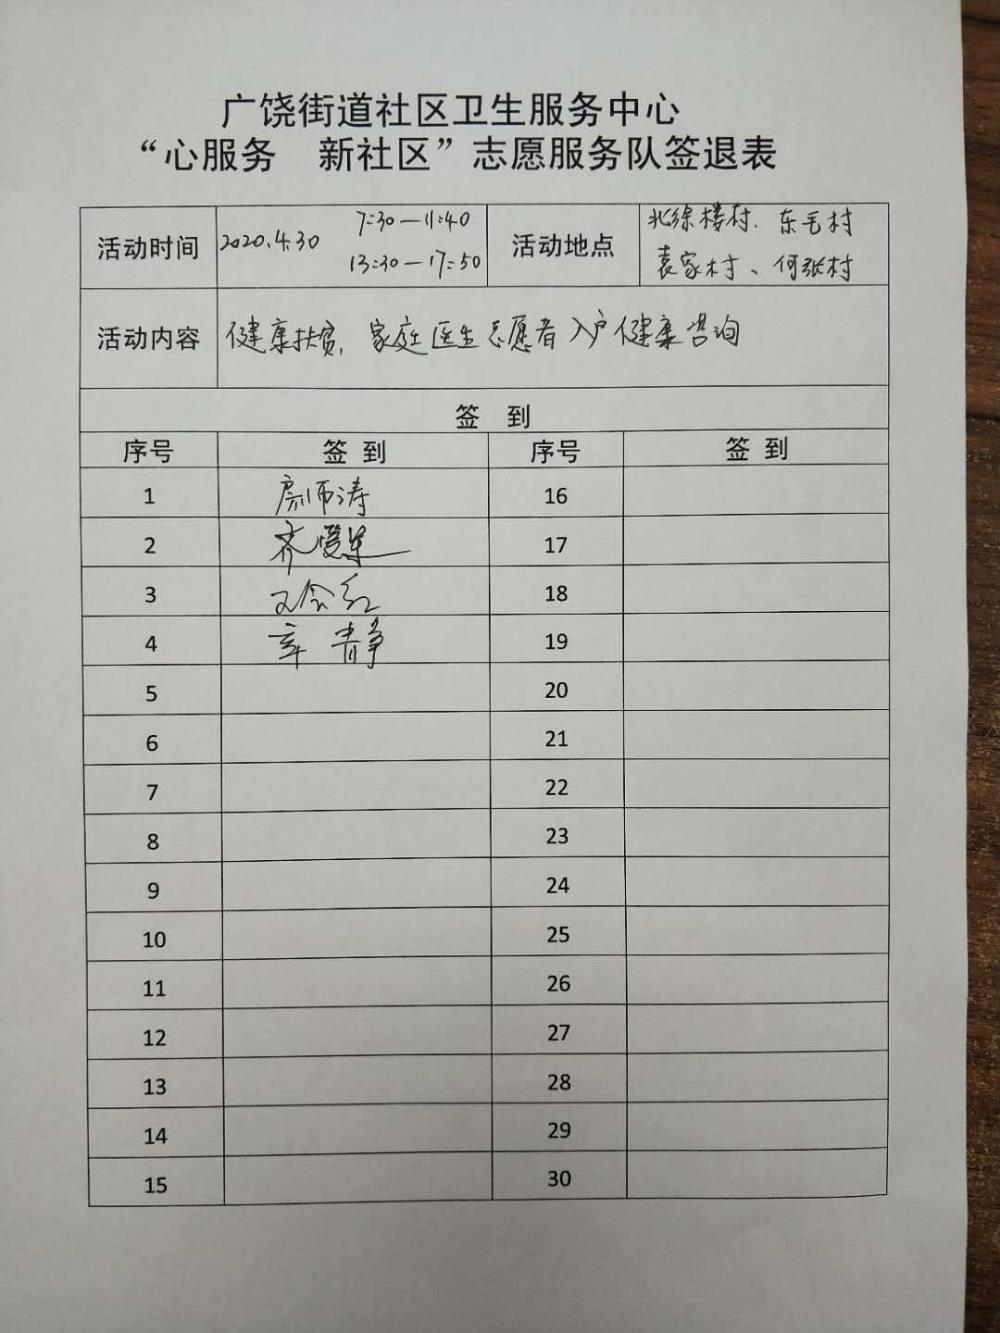 广饶街道社区卫生服务中心
“心服务 新社区”志愿服务队签退表
活动时间 2020.4.30 7:30—11:40 13:30—17:50 活动地点 北徐楼村、东毛村 袁家村、何张村
活动内容 健康扶贫,家庭医生志愿者入户健康咨询
签 到
序号 签到 序号 签到
1 16
2 齐爱 17
3 18
4 青静 19
5 20
6 21
7 22
8 23
9 24
10 25
11 26
12 27
13 28
14 29
15 30